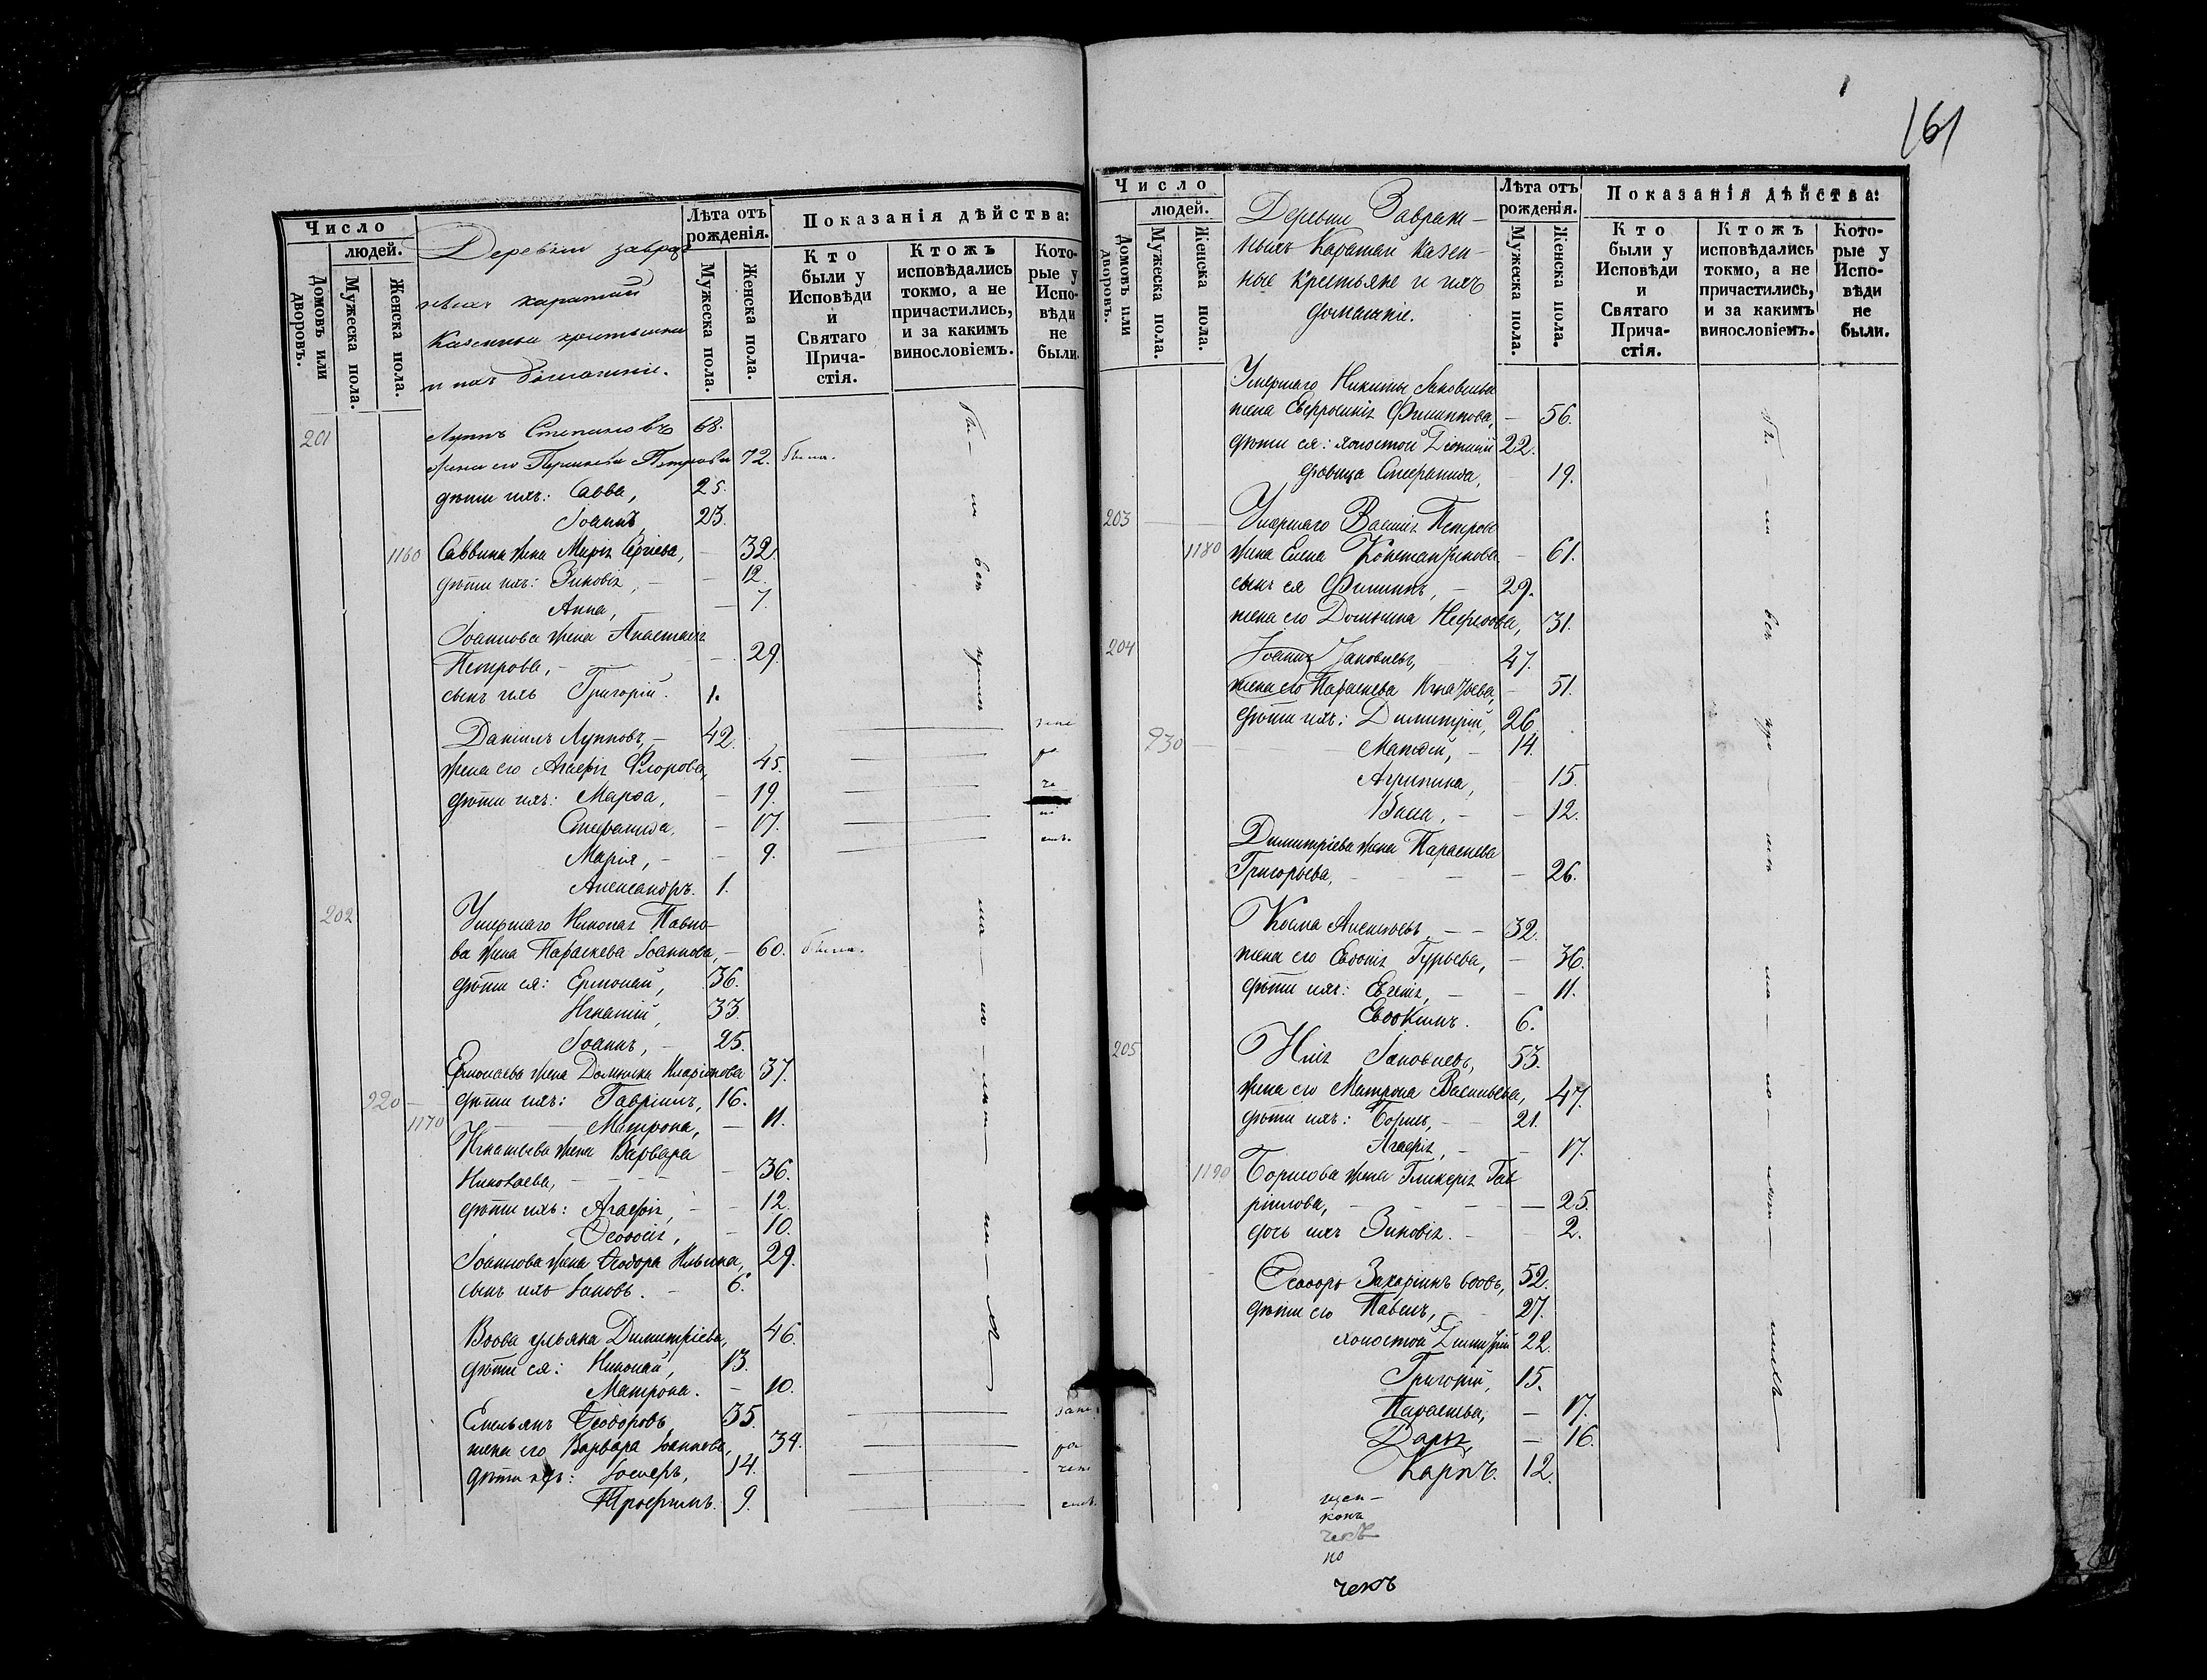 161
Число
людей.
Домовъ или дворовъ.
Мужеска пола.
Женска пола.
Деревни завраж
ныхъ каратай
казенныи крестьяни
и ихъ домашніи.
Лѣта отъ рожденія.
Мужеска пола.
Женска пола.
Показанія дѣйства:
Кто были у Исповѣди и Святаго Прича-стія.
Ктожъ исповѣдались токмо, а не причастились, и за какимъ винословіемъ.
Кото-рые у Испо-вѣди не были.
201 Луппъ Степановъ 68.
жена его Параскева Петрова 72. была.
дѣти ихъ: Савва, 25.
Іоаннъ, 23.
1160 Саввина жена Марія Сергіева, — 32.
дѣти ихъ: Зиновія, — — 12.
Анна, — 7.
Іоаннова жена Анастасія
Петрова, — — 29.
сынъ ихъ Григорій. 1.
Даніилъ Лупповъ, — 42.
жена его Агафія Флорова, 45.
дѣти ихъ: Марѳа, — 19.
Стефанида, — 17.
Марія, — — 9.
Александръ. 1.
202 Умершаго Николая Павло-
ва жена Параскева Іоаннова, — 60. была.
дѣти ея: Ермолай, 36.
Игнатій, 33.
Іоаннъ, — 25.
Ермолаева жена Домника Иларіонова 37.
920 — дѣти ихъ: Гавріилъ, 16.
1170 Матрона, — 11.
Игнатьева жена Варвара
Николаева, — — 36.
дѣти ихъ: Агафія, — — 12.
Ѳеодосія, — 10.
Іоаннова жена Ѳеодора Ильина, 29.
сынъ ихъ Іаковъ. — 6.
Вдова ульяна Димитріева, 46.
дѣти ея: Николай, 13.
Матрона. — 10.
Емельянъ Ѳеодоровъ, 35.
жена его Варвара Іоаннова, 34.
дѣти ихъ: Іосифъ, 14.
Трофимъ. 9.
Число
людей.
Домовъ или дворовъ.
Мужеска пола.
Женска пола.
Деревни Завраж-
ныхъ Каратай казен-
ные крестьяне и ихъ
домашніе.
Лѣта отъ рожденія.
Мужеска пола.
Женска пола.
Показанія дѣйства:
Кто были у Исповѣди и Святаго Прича-стія.
Ктожъ исповѣдались токмо, а не причастились, и за какимъ винословіемъ.
Кото-рые у Испо-вѣди не были.
Умершаго Никиты Іаковлева
жена Евфросинія Филиппова, — 56.
дѣти ея: холостой Діонисій 22.
дѣвица Стефанида, — 19.
203 Умершаго Василія Петрова
1180 жена Елена Константинова — 61.
сынъ ея Филиппъ, — 29.
жена его Домникиа Нефедова, 31.
204 Іоаннъ Іаковлевъ, 47.
жена его Параскева Игнатьева, — 51.
дѣти ихъ: Димитрій, 26
930 — Матѳей, — 14.
Агрипина, — 15.
Васса, — — 12.
Димитріева жена Параскева
Григорьева, — — 26.
Косма Алексѣевъ — — 32.
жена его Евдокія Гурьева, — 36.
дѣти ихъ: Евгенія, — — 11.
Евдокимъ. 6.
205 Илія Іаковлевъ, 53.
жена его Матрона Васильева, 47.
дѣти ихъ: Борисъ, — 21.
Агафія, — — 17.
1190 Борисова жена Гликерія Гав
ріилова, — — — 25.
дочь ихъ Зиновія. — 2.
Ѳеодоръ Захаріинъ вдовъ, 52.
дѣти его Павелъ, 27.
холостой Димитрій 22.
Григорій, 15.
Параскева, — 17.
Дарья, — 16.
Карпъ. 12.
чекъ